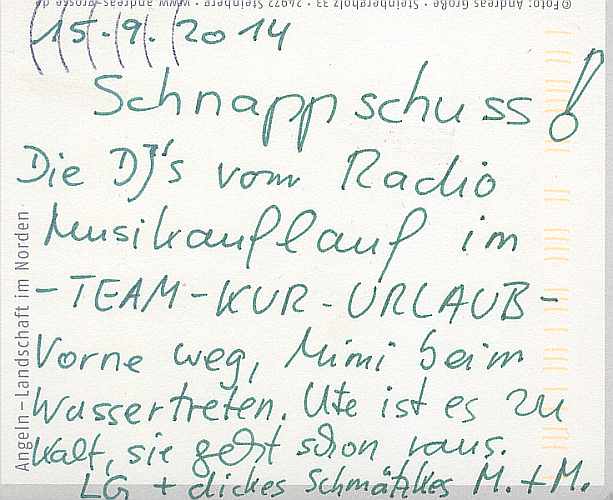 ©Foto: Andreas Große · Steinbergholz 33 · 24972 Steinberg · www.andreas-grosse
15.9.2014
Schnappschuss!
Die DJ's vom Radio
Musikauflauf im
- TEAM - KUR - URLAUB -
Vorne weg, Mimi beim
Wassertreten. Ute ist es zu
kalt, sie geht schon raus.
LG + dickes Schmätzkes M. + M.
Angeln – Landschaft im Norden